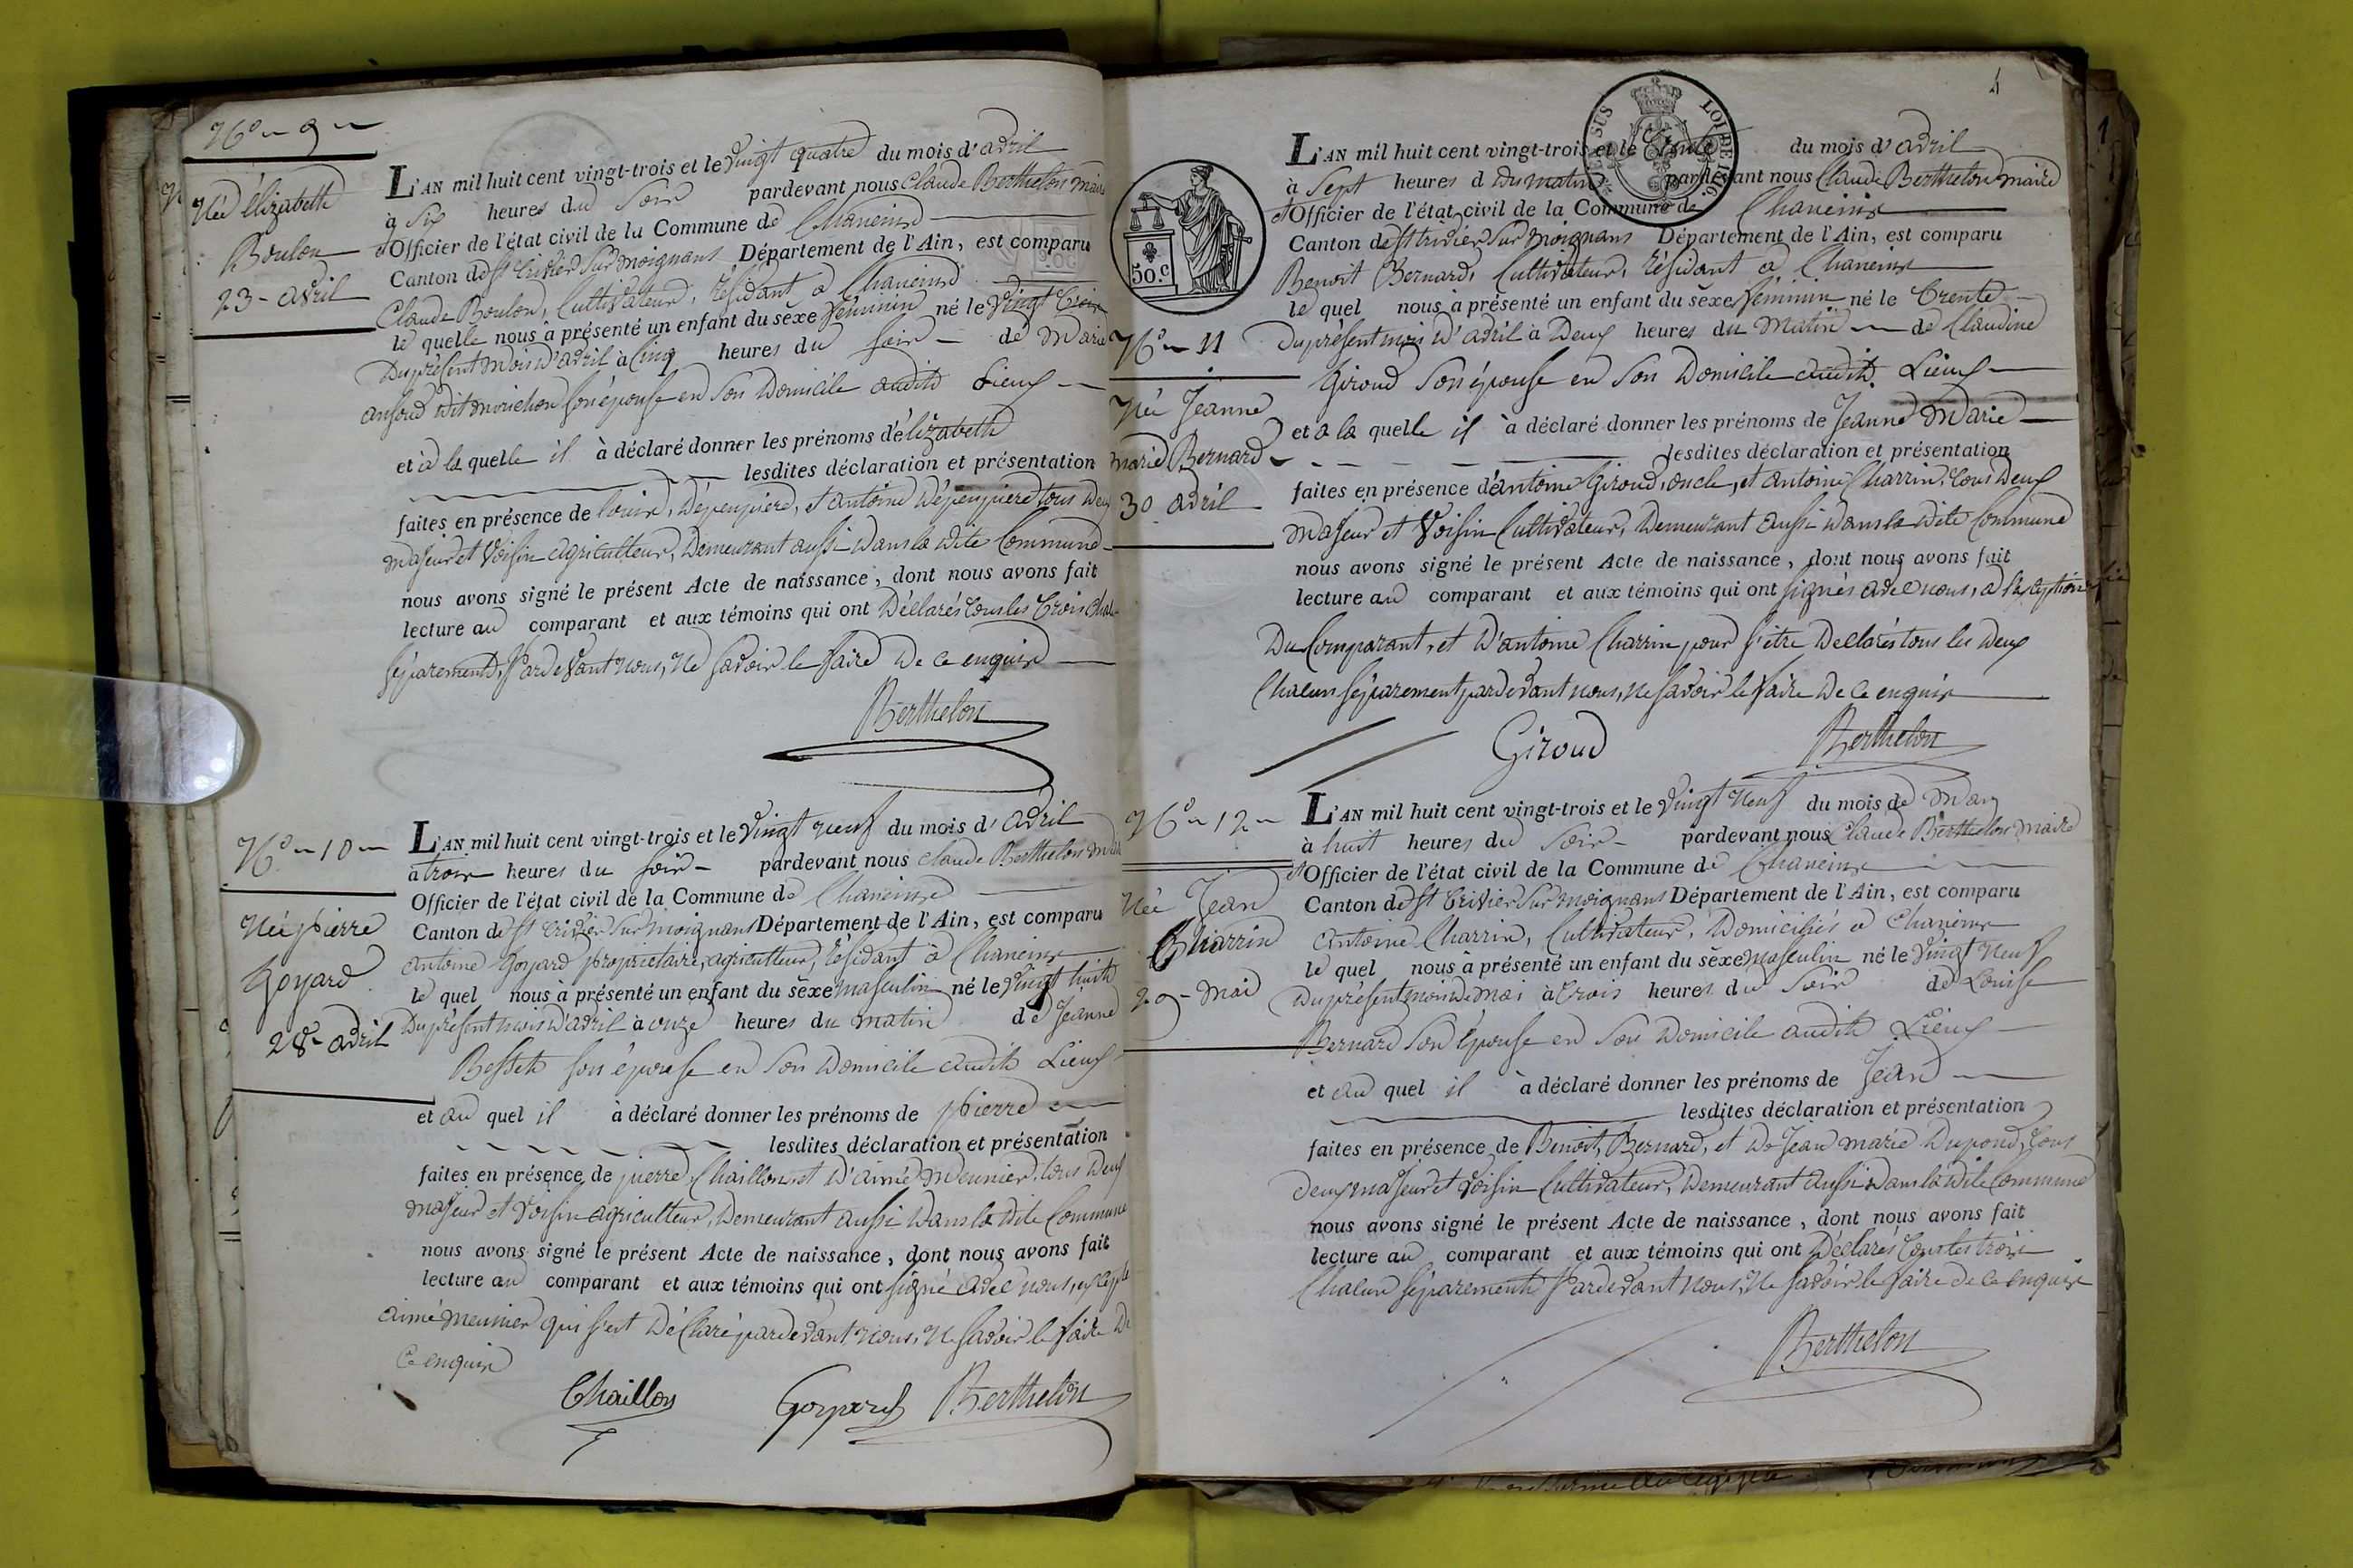 N° 9
Née élizabeth
Boulon
23 - avril
L'AN mil huit cent vingt-trois et le Vingt quatre du mois d'avril
à Six heures du Soir pardevant nous Claude Berthelon maire
et Officier de l'état civil de la Commune de Chaneins
Canton de St trivier Sur moignans Département de l'Ain, est comparu
Claude Boulon, Cultivateur, résidant à Chaneins
le quelle nous à présenté un enfant du sèxe féminin né le Vingt trois
Du présent mois d'avril à Cinq heures du soir - de Marie
dit son épouse en son Domicile audit Lieux
et à la quelle il à déclaré donner les prénoms d'élizabeth
lesdites déclaration et présentation
faites en présence de louis, Dépeupiere, et antoine Dépeupiere tous deux
majeur et Voisin agriculteur, Demeurant aussi dans la dite Commune
nous avons signé le présent Acte de naissance, dont nous avons fait
lecture au comparant et aux témoins qui ont Déclarés tous les trois
séparement, Pardevant nous, Ne savoir le faire De ce enquis
Berthelon
N° 10
Née pierre
Goyard
28 - avril
L'AN mil huit cent vingt-trois et le Vingt neuf du mois d'avril
à trois heures du soir - pardevant nous Claude Berthelon
Officier de l'état civil de la Commune de Chaneins
Canton de St trivier Sur moignans Département de l'Ain, est comparu
antoine Goyard propriétaire, agriculteur, résidant à Chaneins
le quel nous à présenté un enfant du sèxe masculin né le Vingt huit
Du présent mois d'avril à onze heures du matin de Jeanne
Besset son épouse en son Domicile audit Lieux
et au quel il à déclaré donner les prénoms de pierre
lesdites déclaration et présentation
faites en présence de pierre Chaillon, et d'aimé Meunier, tous deux
majeur et Voisin agriculteur, Demeurant aussi dans la dite Commune
nous avons signé le présent Acte de naissance, dont nous avons fait
lecture au comparant et aux témoins qui ont signé avec nous, excepté
aimé meunier qui s'est Déclaré pardevant nous, Ne savoir le faire De
Ce enquis
Chaillon Goyard Berthelon
4
SUS LOI DE 1816
50.C
N° 11
Née Jeanne
marie Bernard
30 avril
L'AN mil huit cent vingt-trois et le trente du mois d'avril
à Sept heures d du matin pardevant nous Claude Berthelon maire
et Officier de l'état civil de la Commune de Chaneins
Canton de St trivier Sur moignans Département de l'Ain, est comparu
Benoit Bernard, Cultivateur, résidant à Chaneins
le quel nous à présenté un enfant du sèxe féminin né le trente
Du présent mois d'avril à Deux heures du Matin de Claudine
Giroud son épouse en son Domicile audit Lieux
et a la quelle il à déclaré donner les prénoms de Jeanne Marie
lesdites déclaration et présentation
faites en présence d'antoine Giroud, oncle, et antoine Charrin, tous deux
majeur et Voisin Cultivateur, Demeurant aussi dans la dite Commune
nous avons signé le présent Acte de naissance, dont nous avons fait
lecture au comparant et aux témoins qui ont signés avec nous, a l'exception
Du Comparant, et d'antoine Charrin pour s'être Declarés tous les deux
Chacun séparement pardevant nous, ne savoir le faire De ce enquis
Giroud Berthelon
N° 12
Née Jean
Charrin
29 - mai
L'AN mil huit cent vingt-trois et le Vingt Neuf du mois de May
à huit heures du Soir - pardevant nous Claude Berthelon maire
et Officier de l'état civil de la Commune de Chaneins
Canton de St trivier Sur moignans Département de l'Ain, est comparu
Antoine Charrin, Cultivateur, Domiciliés a Chaneins
le quel nous à présenté un enfant du sèxe masculin né le Vingt Neuf
Du présent mois de mai à trois heures du Soir de Louise
Bernard Son épouse en Son Domicile audit Lieux
et au quel il à déclaré donner les prénoms de Jean
lesdites déclaration et présentation
faites en présence de Benoit Bernard, et de Jean marie Dupond, tous
deux majeur et Voisin Cultivateur, Demeurant aussi dans la dite Commune
nous avons signé le présent Acte de naissance, dont nous avons fait
lecture au comparant et aux témoins qui ont Déclarés tous les trois
Chacun séparement Pardevant nous, Ne savoir le faire de ce enquis
Berthelon